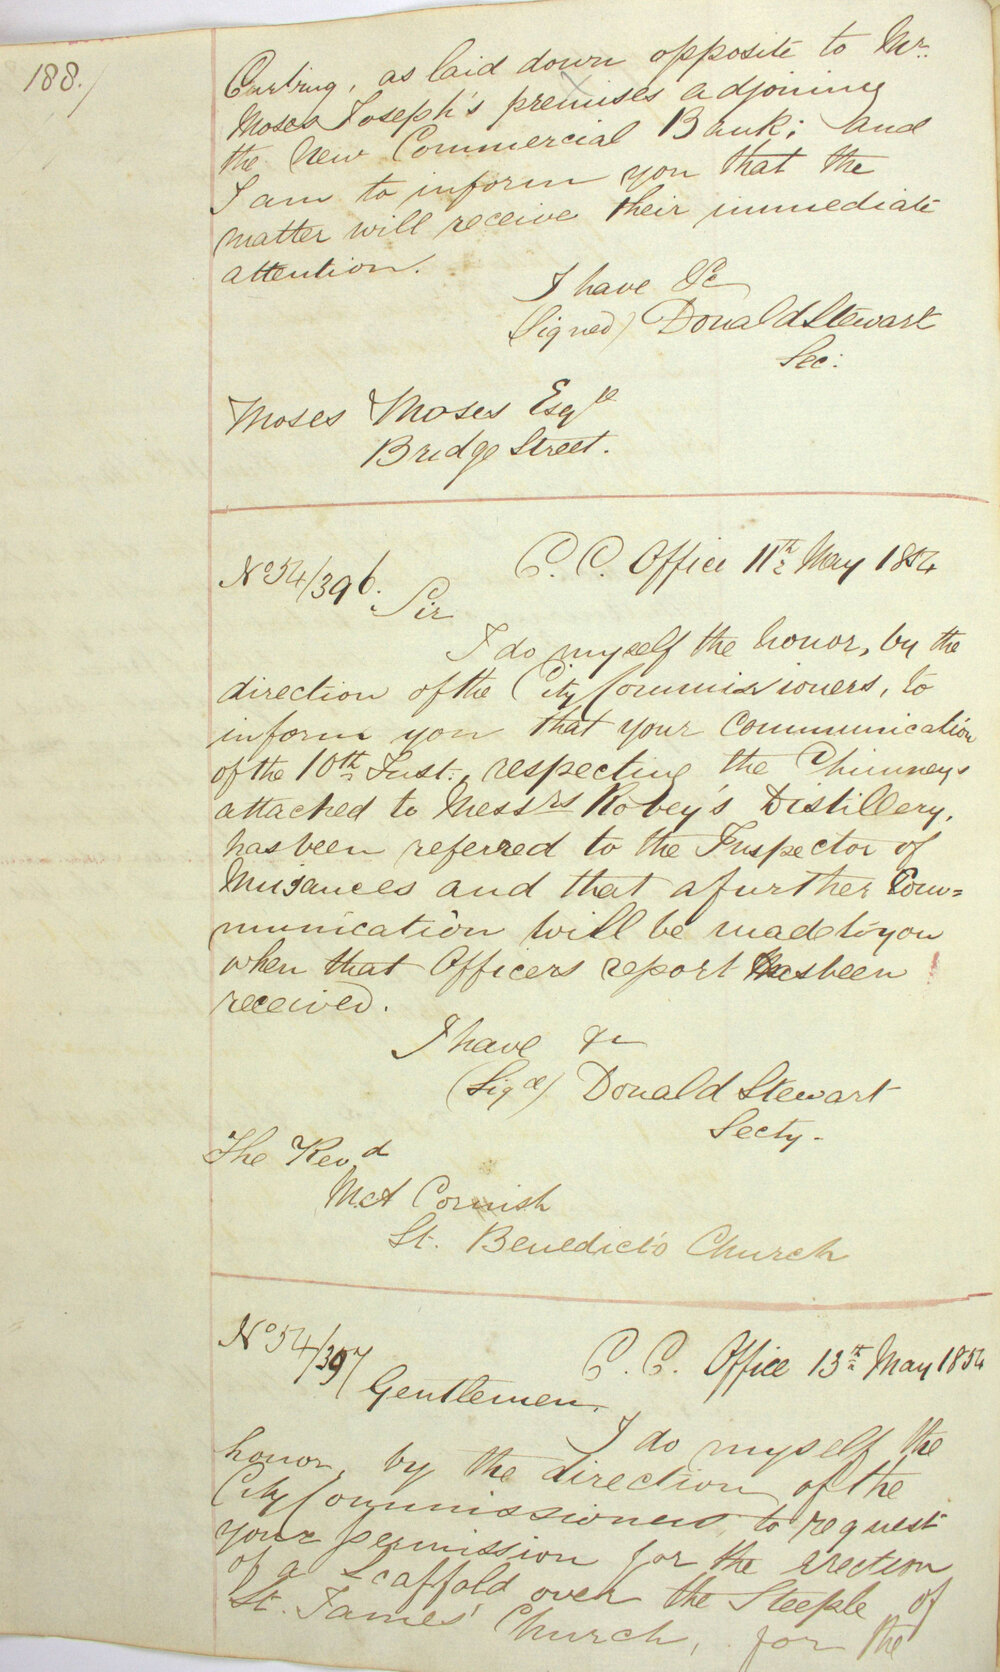 188.
Curbing, as laid down opposite to Mr.
Moses Joseph's premises adjoining
the New Commercial Bank; and
I am to inform you that the
matter will receive their immediate
attention.
I have &c
(Signed) Donald Stewart
Sec:
Moses Moses Esqre
Bridge Street.
No 54/396. C. C. Office 11th May 1854
Sir
I do myself the honor, by the
direction of the City Commissioners, to
inform you that your Communication
of the 10th Inst., respecting the Chimneys
attached to Messrs Robey's Distillery,
has been referred to the Inspector of
Nuisances and that a further Com=
munication will be made to you
when that Officers report has been
received.
I have &c
(Sigd) Donald Stewart
Secty-
The Revd
McA Cornish
St. Benedict's Church
No 54/397 C. C. Office 13th May 1854
Gentlemen.
I do myself the
honor, by the direction of the
City Commissioners to request
your permission for the erection
of a Scaffold over the Steeple of
St. James' Church, for the